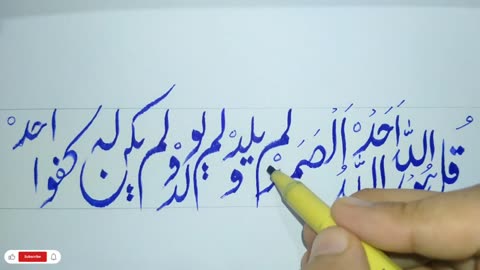 قُل هو الله اَحَدْ الله اَلصَمَدْ لم يلدْ و لم يولدْ و لم يكن له كفوا احدْ
Subscribe